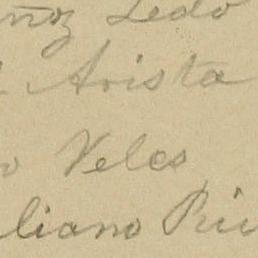 ñoz Ledo
Arista
o Veles
liano Riv